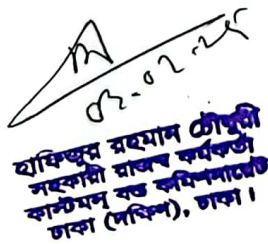 ০২-০২-২৫
হাফিজুর রহমান চৌধুরী
সহকারী রাজস্ব কর্মকর্তা
কাস্টমস বন্ড কমিশনারেট
ঢাকা (দক্ষিণ), ঢাকা।